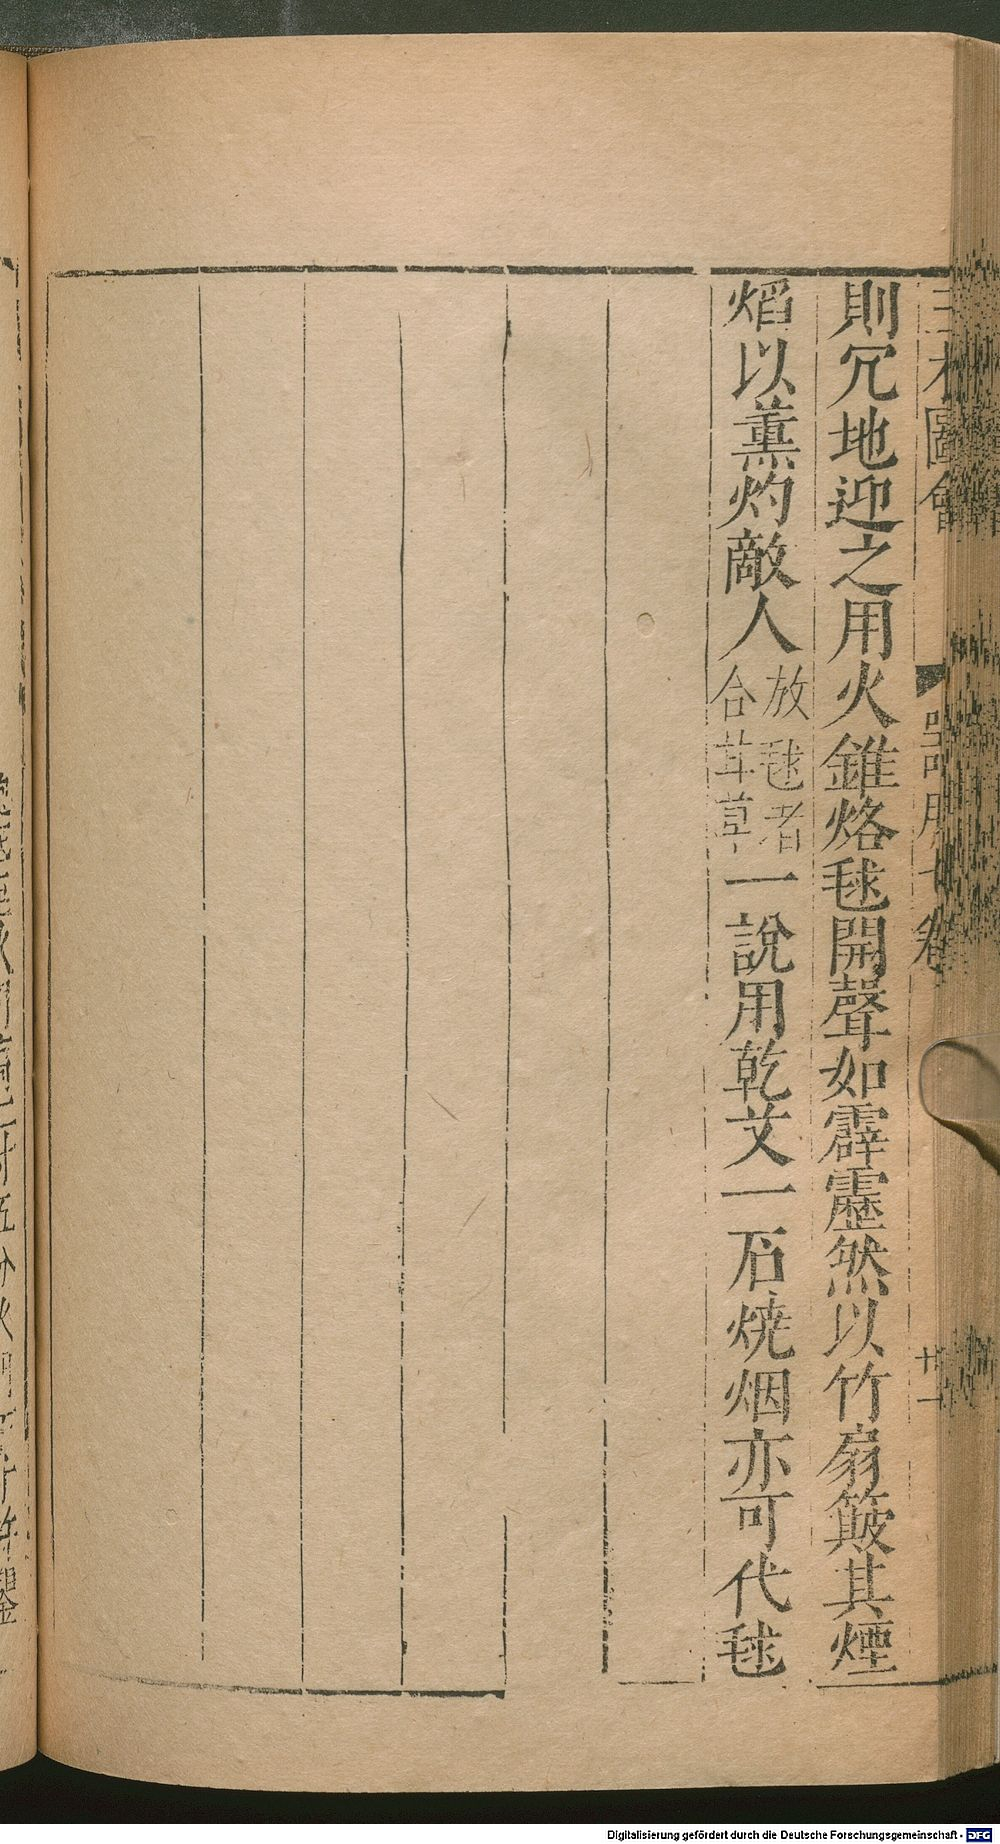 圖會
則穴地迎之用火錐烙毬開聲如霹靂然以竹扇簸其煙
熖以薰灼敵人
放毬者
合甘草
一說用乾艾一石燒烟亦可代毬
廿一
Digitalisierung gefördert durch die Deutsche Forschungsgemeinschaft - DFG